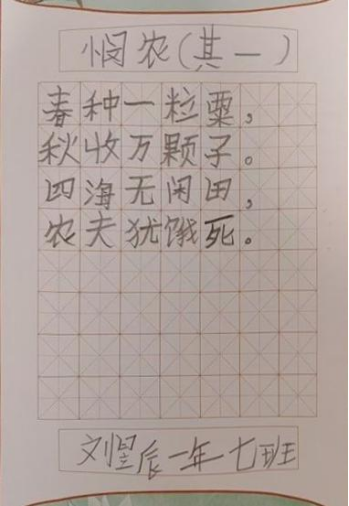 悯农(其一)
春种一粒粟，
秋收万颗子。
四海无闲田，
农夫犹饿死。
刘辰一年七班